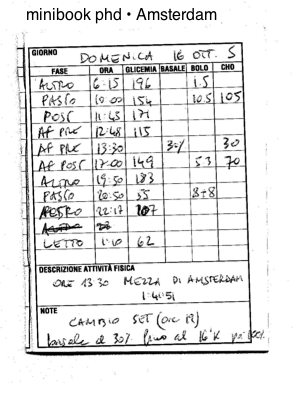 minibook phd • Amsterdam
GIORNO DOMENICA 16 OTT. S
FASE ORA GLICEMIA BASALE BOLO CHO
ALTRO 6:15 196 1.5
PASTO 10:00 154 10.5 105
POST 11:45 171
AF PRE 12:48 115
AF PRE 13:30 30
AF POST 17:00 149 5.3 70
ALTRO 19:50 183
PASTO 20:50 55 8+8
22:17
LETTO 1:10 62
DESCRIZIONE ATTIVITÀ FISICA
ORE 13 30 MEZZA DI AMSTERDAM
1:41:51
NOTE
CAMBIO SET (ORE
basale al 30% fino al 16°K poi